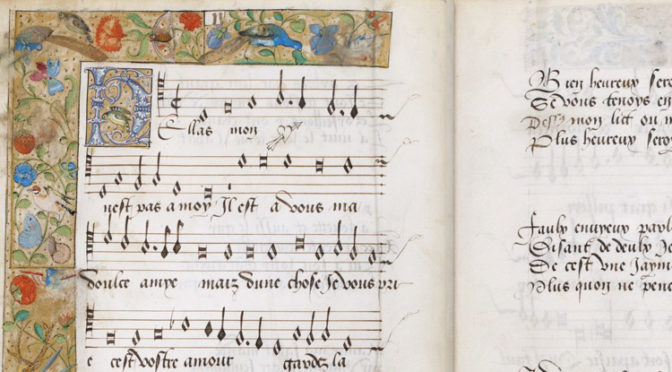 Ellas mon
nest pas a moy Il est a vous ma
doulce amye maiz dune chose Je vous pri
e cest vostre amour gardez la
Bien heureux sero
Se vous tenoys en
mon lict ou
Plus heureux seroy
Faulx envyeux parl
Disant de deulx Je
De cest vne Jaym
Plus quon ne pens